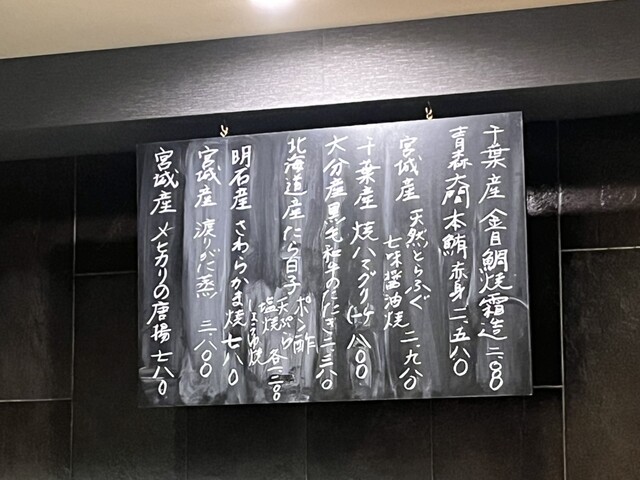 千葉産 金目鯛焼霜造 二.〇八
青森大間 本鮪 赤身 二五八〇
宮城産 天然とらふぐ
七味醤油焼 二.九八〇
千葉産 焼ハマグリ 一ケ 八〇〇
大分産黒毛和牛のたたき 二.三八〇
北海道産たら白子 ポン酢
天ぷら
塩焼 各一二〇〇
しょうゆ焼
明石産 さわらかま焼 七八〇
宮城産 渡りがに蒸 三.八〇〇
宮城産 メヒカリの唐揚 七八〇